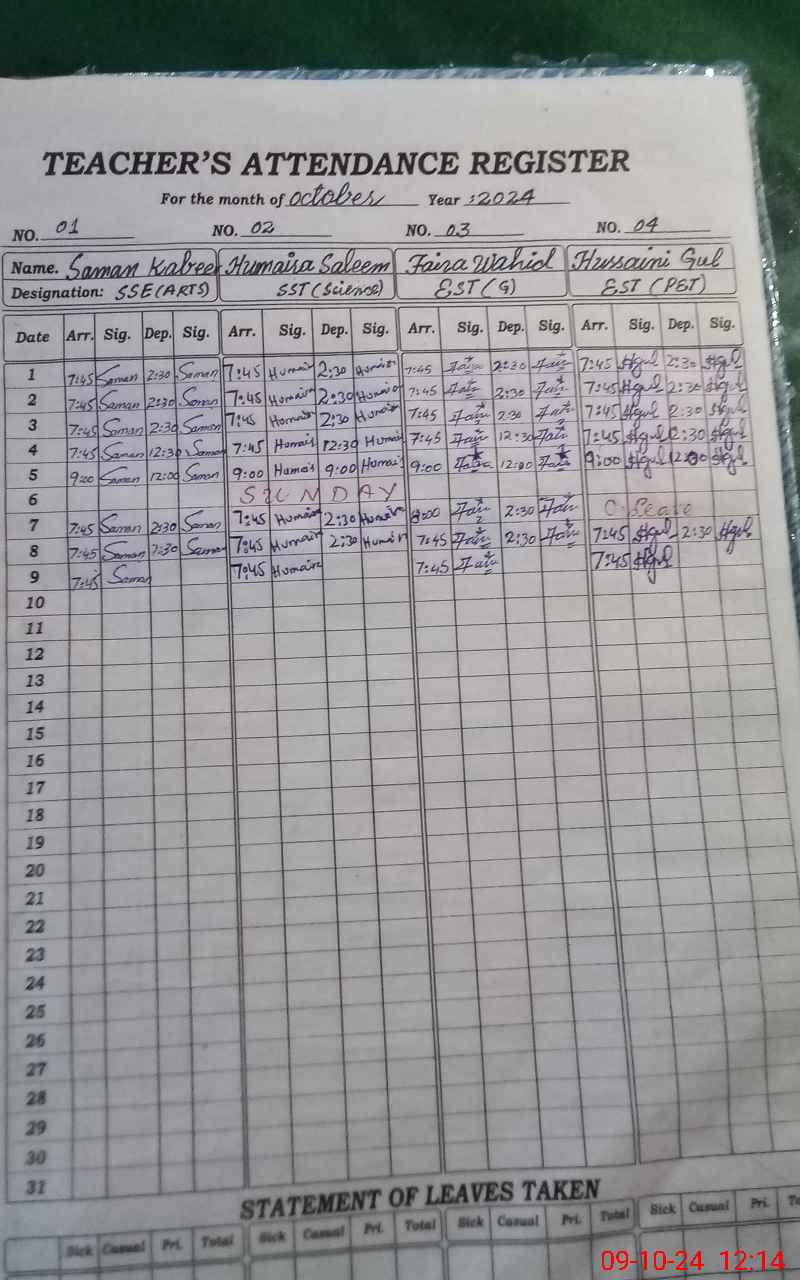 TEACHER'S ATTENDANCE REGISTER
For the month of October Year :2024
NO. 01 NO. 02 NO. 03 NO. 04
Name. Saman Kabeer Humaira Saleem Faiza Wahid Hussaini Gul
Designation: SSE(ARTS) SST(Science) EST(G) EST(PET)
Date Arr. Sig. Dep. Sig. Arr. Sig. Dep. Sig. Arr. Sig. Dep. Sig. Arr. Sig. Dep. Sig.
1 7:45 Saman 2:30 Saman 7:45 Humair 2:30 Humair 7:45 Faiz 2:30 Faiz 7:45 Hgul 2:30 Hgul
2 7:45 Saman 2:30 Saman 7:45 Humair 2:30 Humair 7:45 Faiz 2:30 Faiz 7:45 Hgul 2:30 Hgul
3 7:45 Saman 2:30 Saman 7:45 Humair 2:30 Humair 7:45 Faiz 2:30 Faiz 7:45 Hgul 2:30 Hgul
4 7:45 Saman 12:30 Saman 7:45 Humair 12:30 Humair 7:45 Faiz 12:30 Faiz 7:45 Hgul 12:30 Hgul
5 9:00 Saman 12:00 Saman 9:00 Humair 9:00 Humair 9:00 Faiza 12:00 Faiz 9:00 Hgul 12:00 Hgul
6 SUNDAY
7 7:45 Saman 2:30 Saman 7:45 Humair 2:30 Humair 8:00 Faiz 2:30 Faiz C. Leave
8 7:45 Saman 7:30 Saman 7:45 Humair 2:30 Humair 7:45 Faiz 2:30 Faiz 7:45 Hgul 2:30 Hgul
9 7:45 Saman 7:45 Humaira 7:45 Faiz 7:45 Hgul
10
11
12
13
14
15
16
17
18
19
20
21
22
23
24
25
26
27
28
29
30
31
STATEMENT OF LEAVES TAKEN
Sick Casual Pri. Total Sick Casual Pri. Total Sick Casual Pri. Total Sick Casual Pri.
09-10-24 12:14